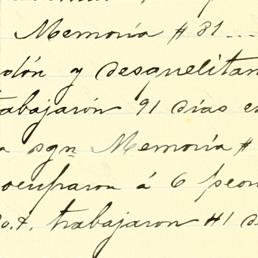 Memoria # 31 ...
odón y desquelitan
trabajarón 91 días e
a sgn Memoria #
ocuparon á 6 peon
o.t. trabajaron 41 d